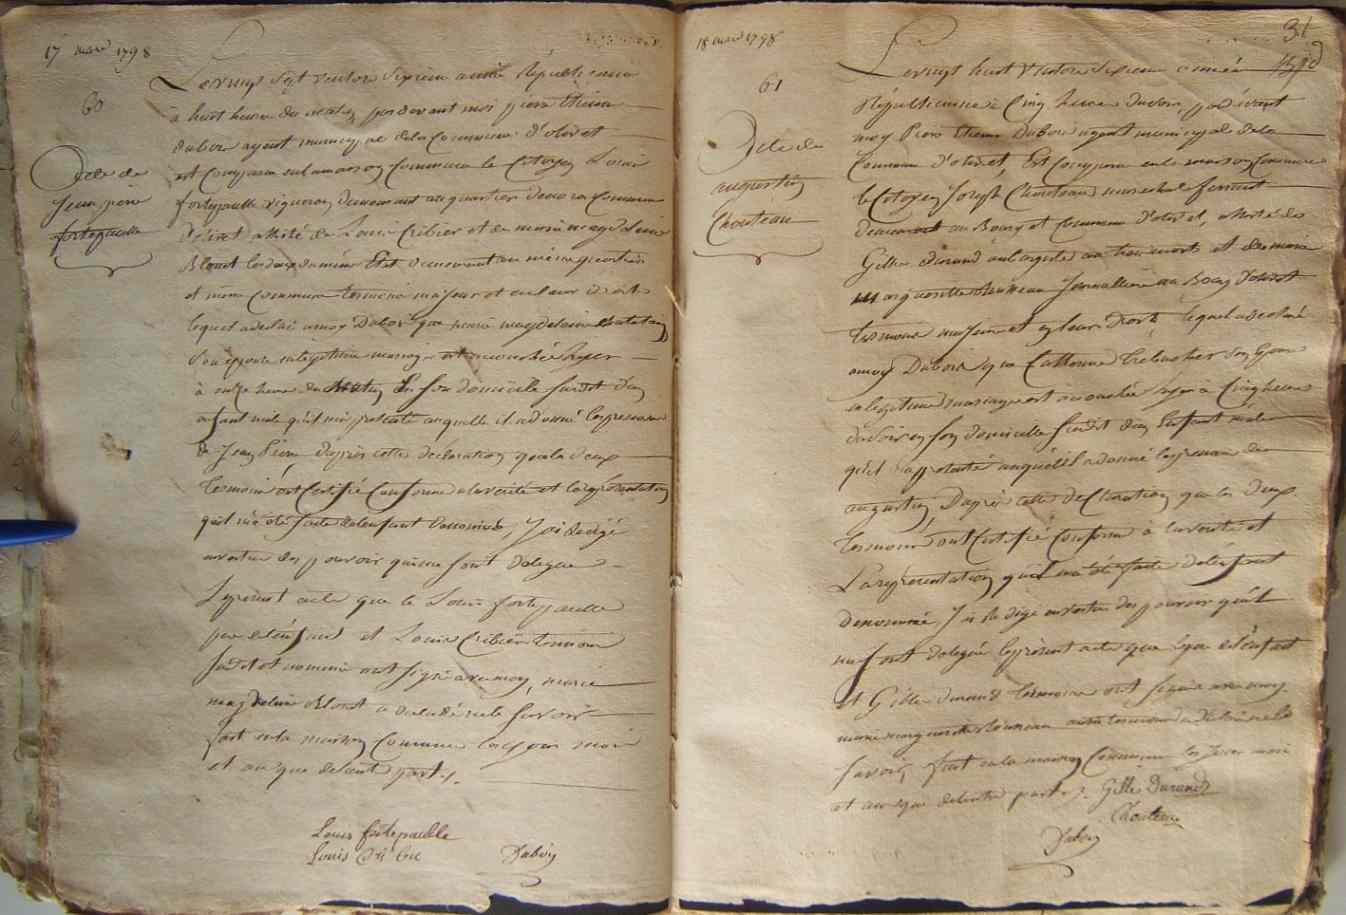 17 mars 1798
60
acte de
jean pierre
fortepaulle
Le vingt sept ventose sixieme année Républicaine
à huit heures du matin, pardevant moi pierre Etienne
dubois agent municipal de la Commune d'olivet
est Comparu en la maison Commune le Citoyen Louis
fortepaulle vigneron demeurant au quartier de
Commune
d'olivet assisté de Louis Cribier et de marie magdelaine
Blouet les deux du même Etat demeurant au même quartier
et même Commune temoins majeurs et en leurs droits
lequel a declaré a moy Dubois que marie magdelaine
son epouse en legitime mariage est accouchée hyer
à onze heures du matin En son domicile susdit d'un
enfant male qu'il m'a presenté auquelle il a donné les prenoms
de Jean Pierre, d'après cette declaration que les deux
temoins ont Certifié Conforme a la verité et la representation
qu'il m'a été faite de l'enfant denommé, J'ai redigé
en vertu des pouvoirs qui me sont delegués
Le present acte que le Louis fortepaulle
pere de l'enfant et Louis Cribier temoins
susdit et nommé ont signé avec moy, marie
magdelaine Blouet a declaré ne le savoir
fait en la maison Commune les jour mois
et an que de l'autre part.
Louis fortepaulle
Louis Cribie
Dubois
18 mars 1798
31
61
acte de
augustin
Chouteau
Le vingt huit Ventose sixieme année
Républicaine à Cinq heures du soir, pardevant
moy Pierre Etienne Dubois agent municipal de la
Commune d'olivet, Est Comparu en la maison Commune
le Citoyen Joseph Chouteau marechal ferrant
demeurant au Bourg et Commune d'olivet, assisté de
Gille durand aubergiste aux trois et de marie
marguerite Journalliere au Bourg d'olivet
temoins majeurs et en leurs droits, lequel a declaré
a moy Dubois que Catherine son Epouse
en legitime mariage est accouchée hyer à Cinq heures
du soir en son domicille susdit d'un Enfant male
qu'il m'a presenté auquel il a donné le prenom de
augustin, D'après cette declaration que les Deux
temoins ont Certifié Conforme à la verité et
La representation qu'il m'a été faite de l'enfant
denommé, J'ai redigé en vertu des pouvoirs qui
me sont delegués le present acte que le pere de l'enfant
et Gille durand temoins ont signé avec moy
marie marguerite aussi temoin a declaré ne le
savoir, fait en la maison Commune les jour mois
et an que de l'autre part. Gille Durand
Chouteau
Dubois